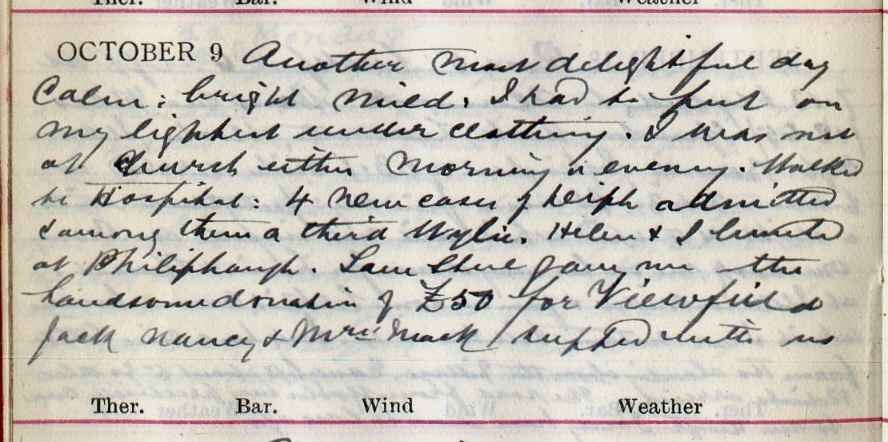 Ther. Bar. Wind Weather
OCTOBER 9 Another most delightful day
Calm: bright mild. I had to put on
my lightest under clothing. I was not
at Church either morning or evening. Walked
to Hospital: 4 new cases of Diph admitted
& among them a third Wylie. Helen & I lunched
at Philiphaugh. Sam gave me the
handsome donation of £50 for Viewfield
Jack Nancy & Mrs Mack supped with us
Ther. Bar. Wind Weather